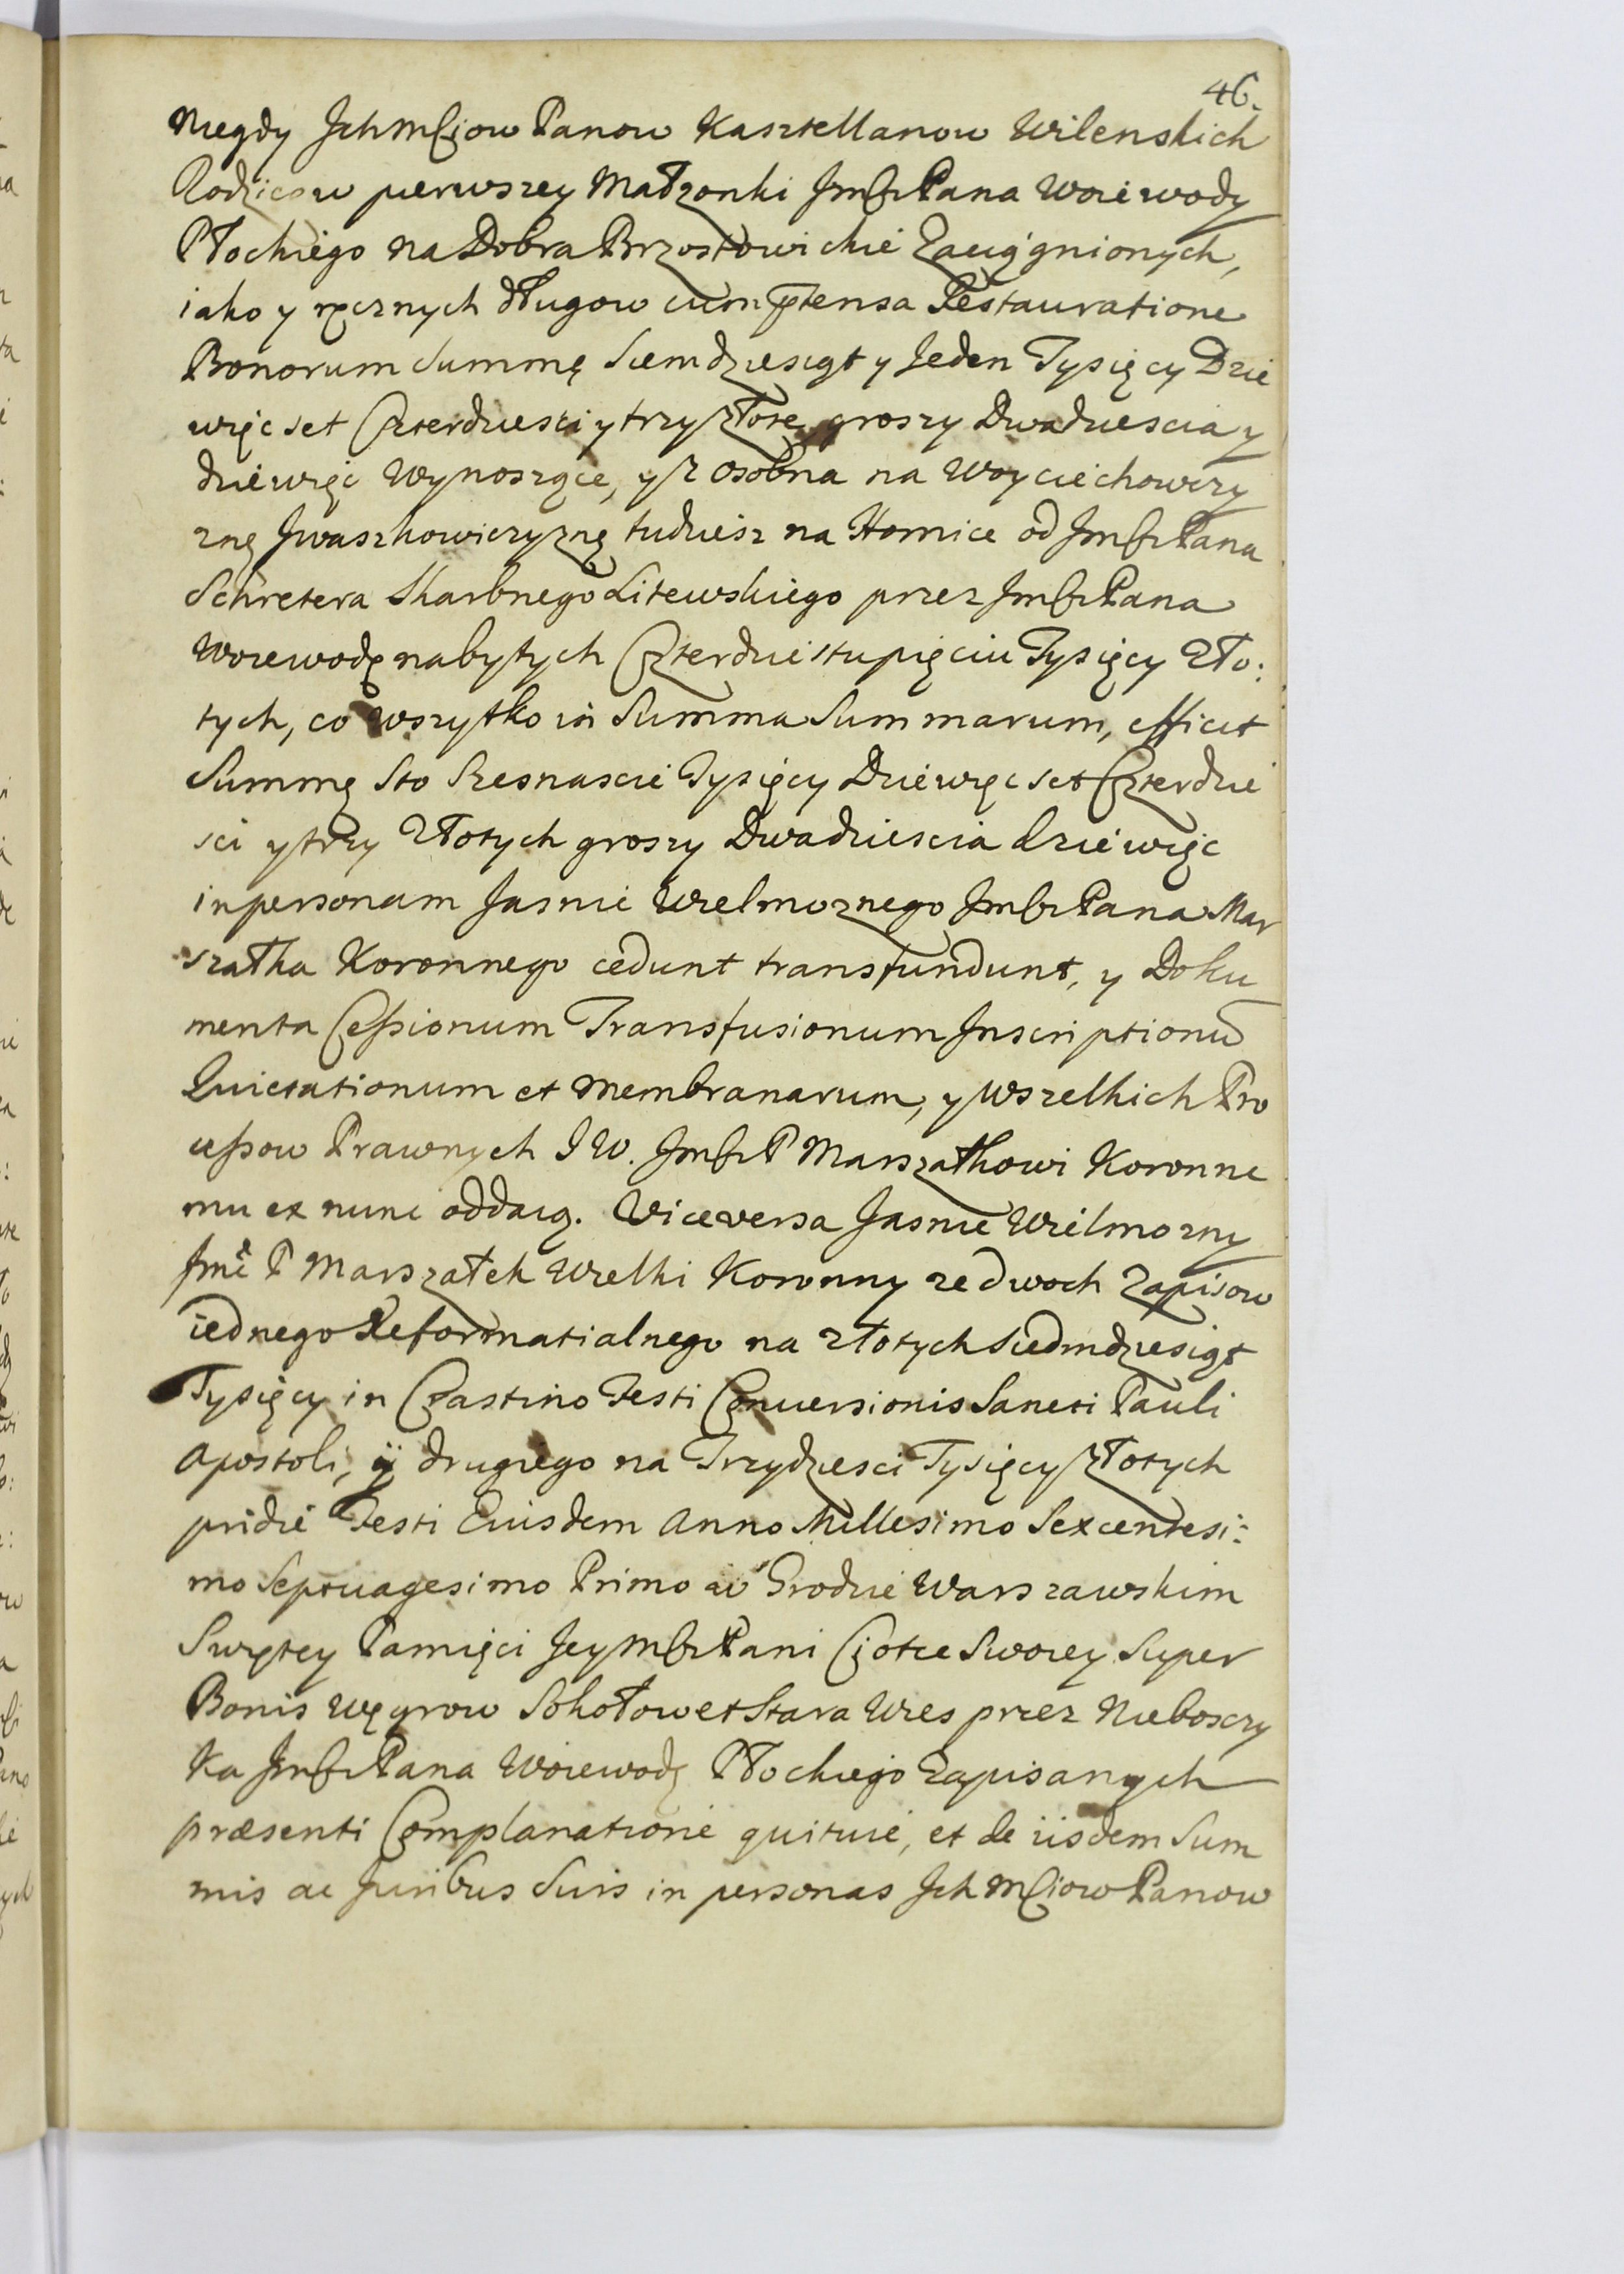 46.
Niegdy Ichmściow Panow Kasztellanow Wilenskich
Rodzicow pierwszey Małzonki Jmści Pana Woiewody
Płockiego na Dobra Brzostowickie Zaciągnionych,
iako y ręcznych długow cum ptensa Restauratione
Bonorum Summę Siemdziesiąt y Jeden Tysięcy Dzie
więc set Czterdziesci y trzy złote groszy Dwadziescia y
dziewięc Wynoszące, y z osobna na Woyciechowczy
znę Iwaszkowiczyznę tudziesz na Homice od Jmści Pana
Schretera Skarbnego Litewskiego przez Jmści Pana
Woiewodę nabytych Czterdziestu pięciu Tysięcy Zło:
tych, co wszytko in Summa Summarum, efficit
Summę Sto Szesnascie Tysięcy Dziewięc set Czterdzie
sci y trzy Złotych groszy Dwadziescia dziewięc
in personam Jasnie Wielmoznego Jmści Pana Mar
szałka Koronnego cedunt transfundunt, y Doku
menta Cessionum Transfusionum Inscriptionu
Quietationum et Membranarum, y Wszelkich Pro
cessow Prawnych J W. Jmści P Marszałkowi Koronne
mu ex nunc oddaią. Vice versa Jasnie Wielmozny
Jmć P Marszałek Wielki Koronny ze dwoch Zapisow
iednego Reformatialnego na złotych Siedmdziesiąt
Tysięcy in Crastino Festi Conuersionis Sancti Pauli
Apostoli, y drugiego na Trzydziesci Tysięcy złotych
pridie Festi Eiusdem Anno Millesimo Sexcentesi:
mo Septuagesimo Primo w Grodzie Warszawskim
Swiętey Pamięci Jeymści Pani Ciotce Swoiey Super
Bonis Węgrow Sokołow et Stara Wies przez Nieboszczy
ka Jmści Pana Woiewodę Płockiego Zapisanych
præsenti Complanatione quituie, et de iisdem Sum
mis ac Juribus Suis in personas Ich Mściow Panow